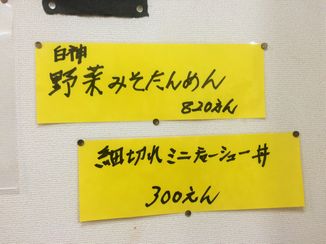 白神
野菜みそたんめん
820えん
細切れミニチャーシュー丼
300えん